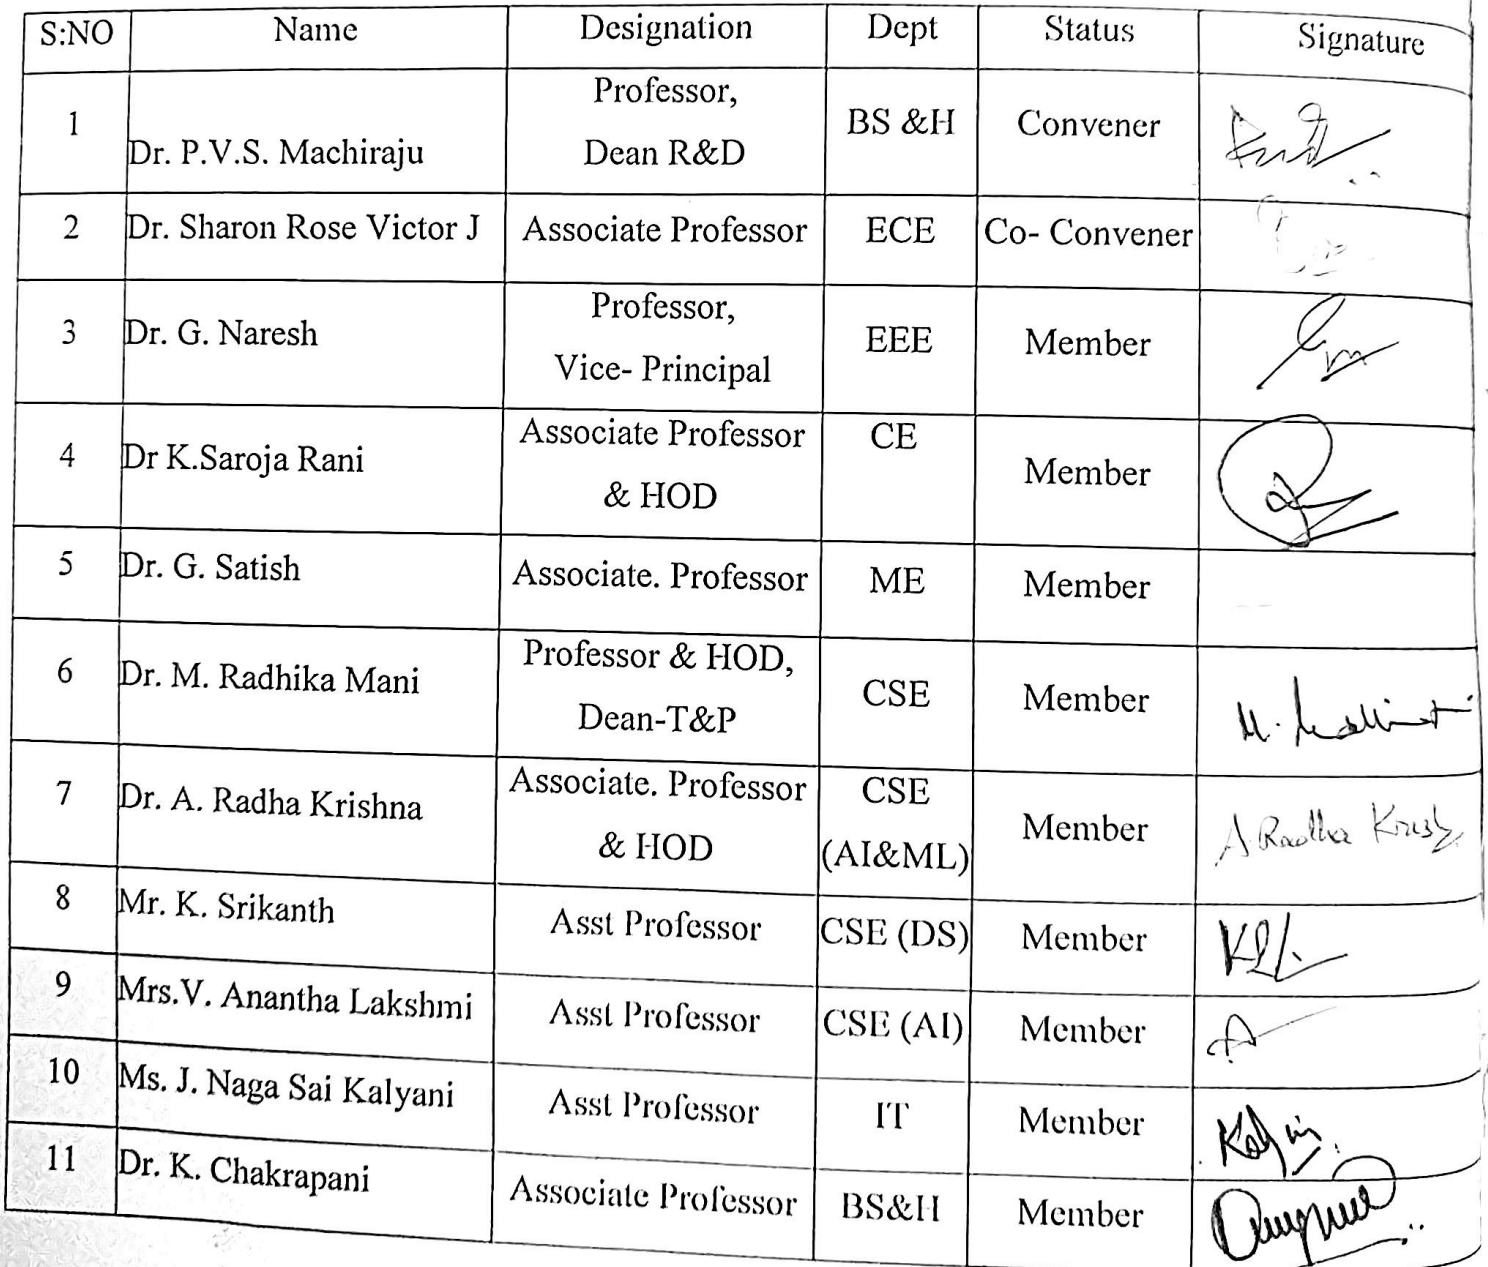 S:NO Name Designation Dept Status Signature
1 Dr. P.V.S. Machiraju Professor, Dean R&D BS &H Convener
2 Dr. Sharon Rose Victor J Associate Professor ECE Co- Convener
3 Dr. G. Naresh Professor, Vice- Principal EEE Member
4 Dr K.Saroja Rani Associate Professor & HOD CE Member
5 Dr. G. Satish Associate. Professor ME Member
6 Dr. M. Radhika Mani Professor & HOD, Dean-T&P CSE Member
7 Dr. A. Radha Krishna Associate. Professor & HOD CSE (AI&ML) Member A. Radha Krish
8 Mr. K. Srikanth Asst Professor CSE (DS) Member
9 Mrs.V. Anantha Lakshmi Asst Professor CSE (AI) Member
10 Ms. J. Naga Sai Kalyani Asst Professor IT Member
11 Dr. K. Chakrapani Associate Professor BS&H Member